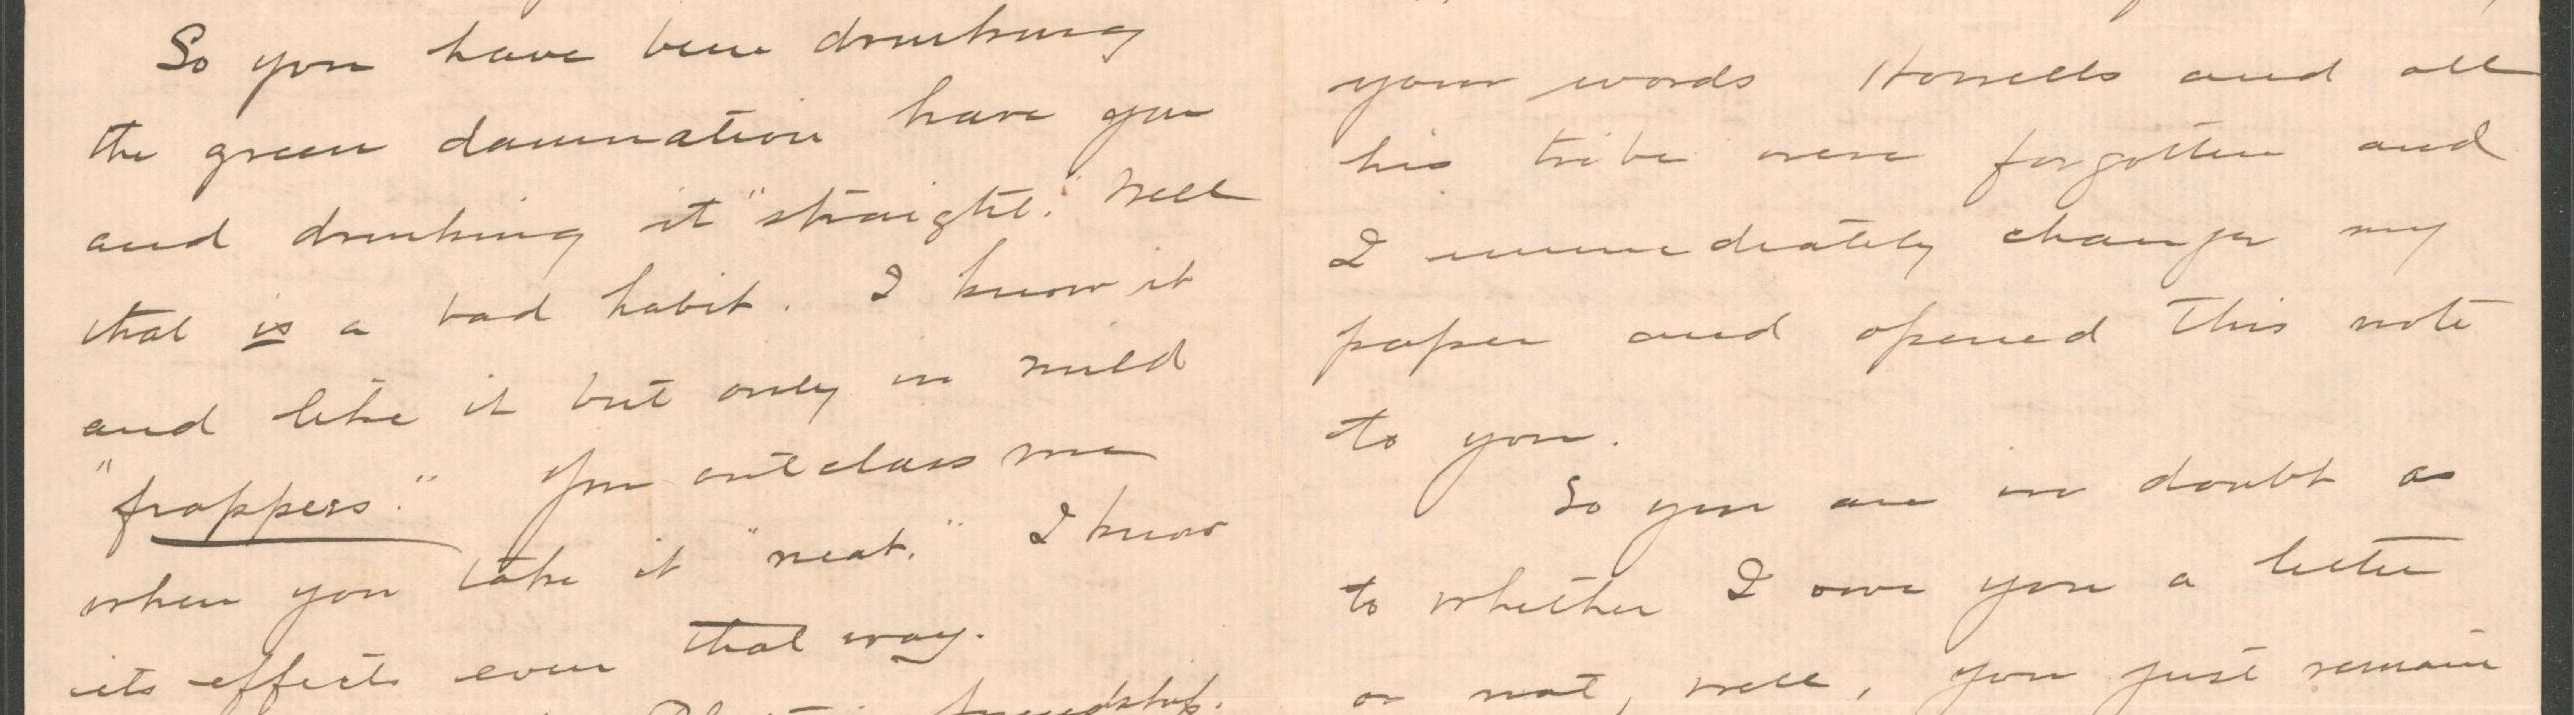 So you have been drinking
the green damnation have you
and drinking it "straight." Well
that is a bad habit. I know it
and like it but only in mild
"frappers." You outclass me
when you take it "neat." I know
its effects even that way.
friendship.
your words Howells and all
his tribe were forgotten and
I immediately change my
paper and opened this note
to you.
So you are in doubt as
to whether I owe you a letter
or not, well, you just remain